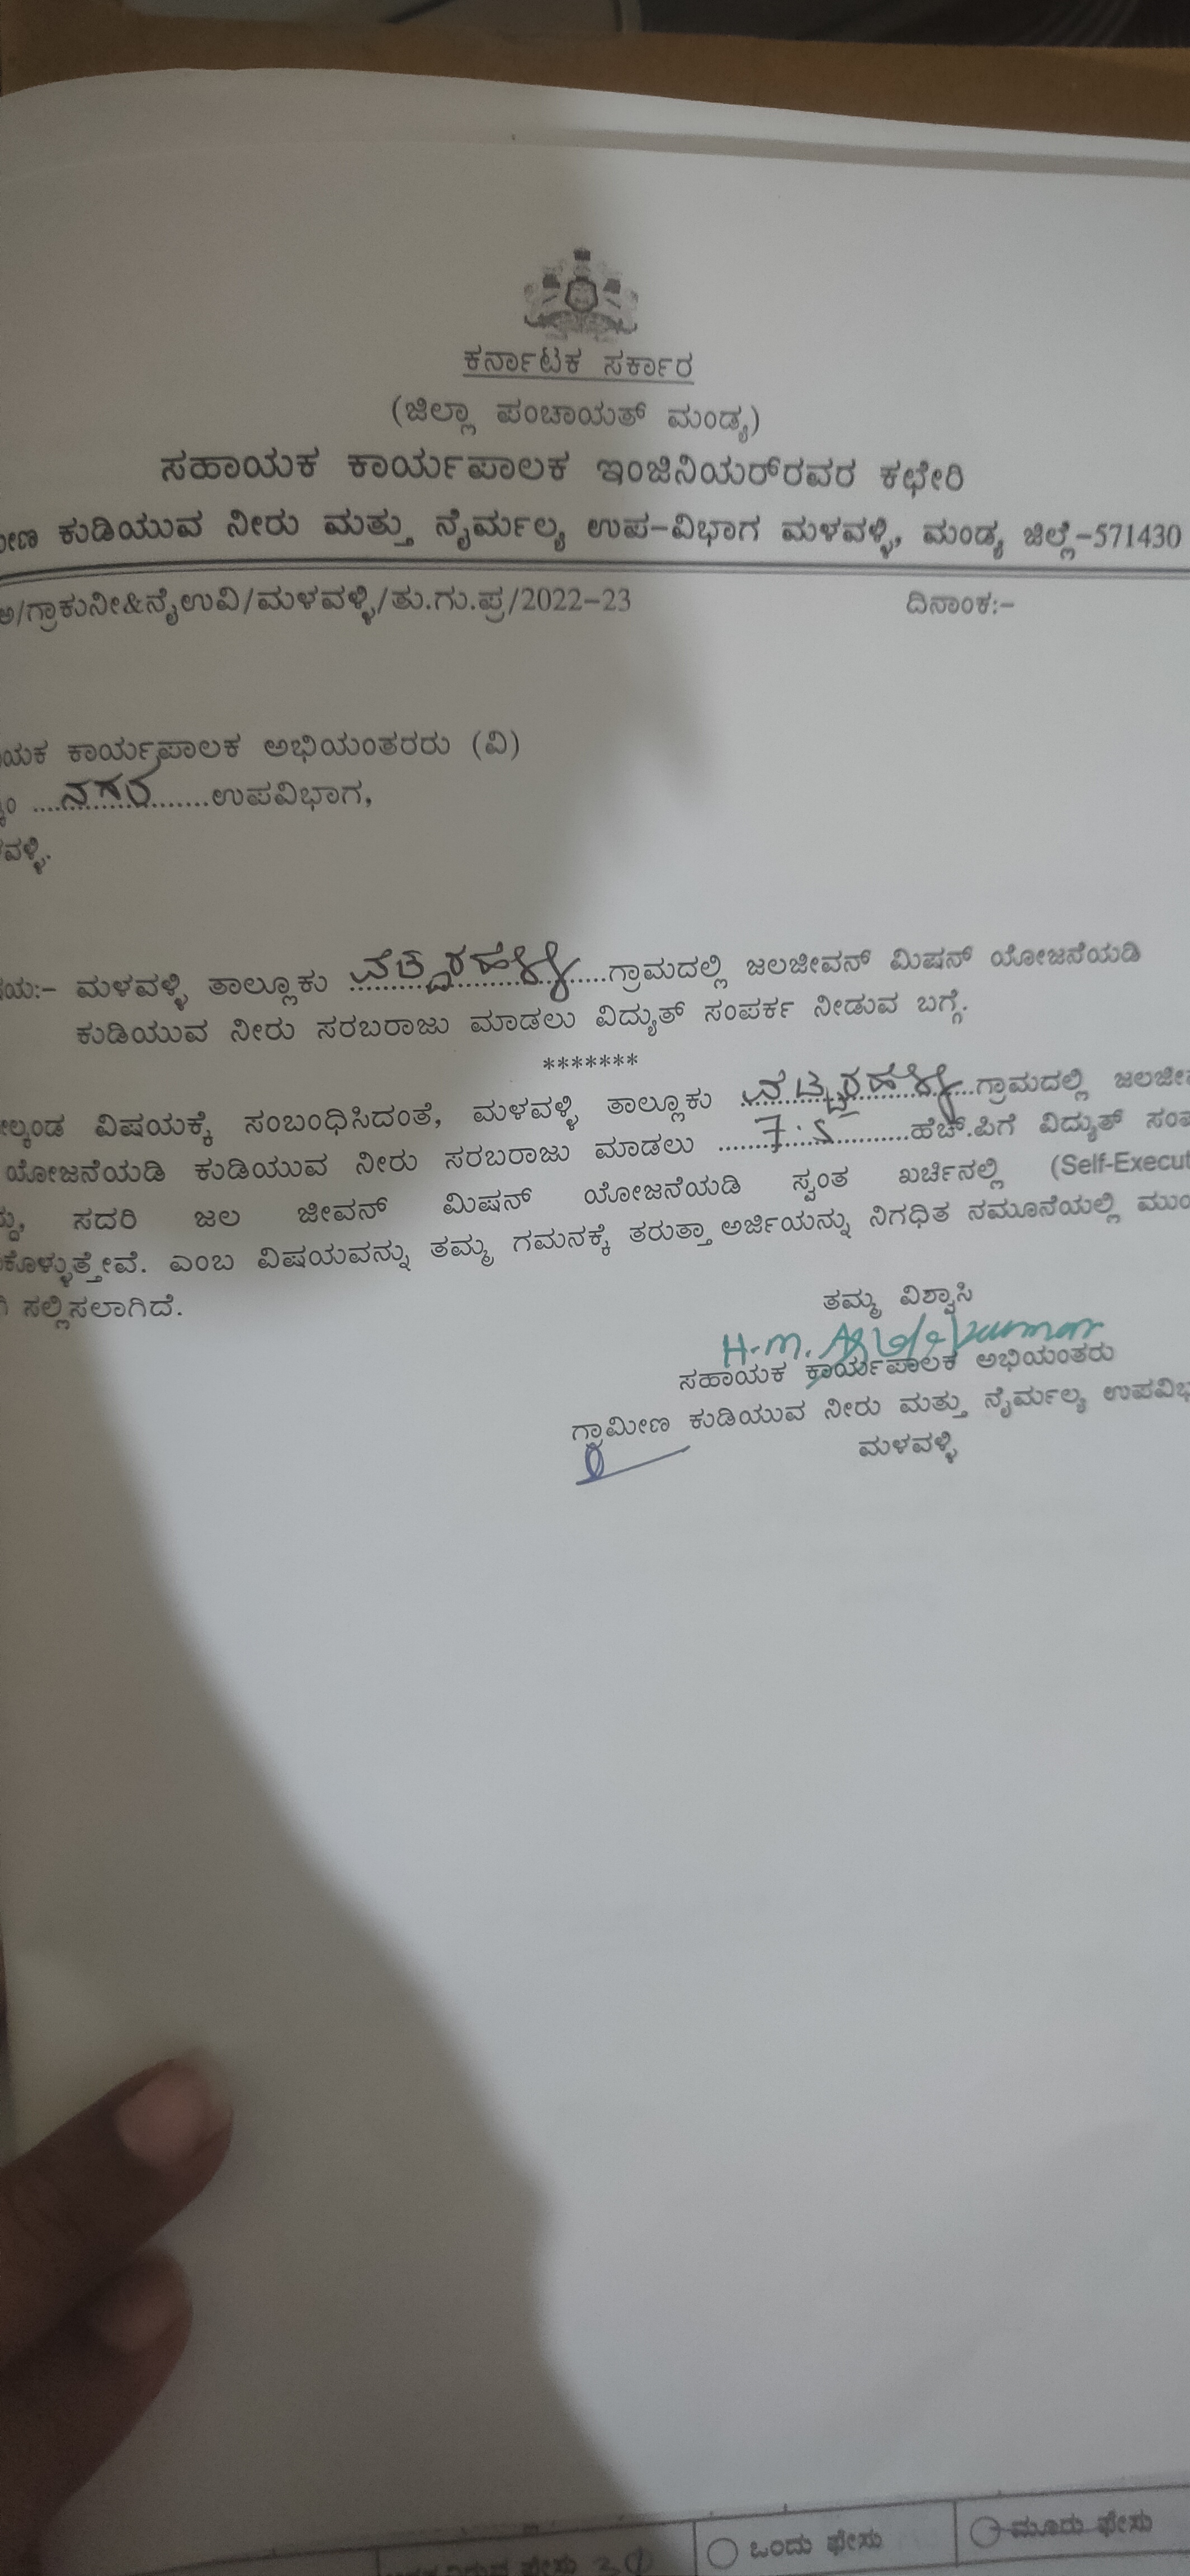 ಕರ್ನಾಟಕ ಸರ್ಕಾರ
(ಜಿಲ್ಲಾ ಪಂಚಾಯತ್ ಮಂಡ್ಯ)
ಸಹಾಯಕ ಕಾರ್ಯಪಾಲಕ ಇಂಜಿನಿಯರ್‌ರವರ ಕಛೇರಿ
ಕುಡಿಯುವ ನೀರು ಮತ್ತು ನೈರ್ಮಲ್ಯ ಉಪ-ವಿಭಾಗ ಮಳವಳ್ಳಿ, ಮಂಡ್ಯ ಜಿಲ್ಲೆ-571430
ಅ/ಗ್ರಾಕುನೀ&ನೈಉವಿ/ಮಳವಳ್ಳಿ/ತು.ಗು.ಪ್ರ/2022-23 ದಿನಾಂಕ:-
ಯಕ ಕಾರ್ಯಪಾಲಕ ಅಭಿಯಂತರರು (ವಿ)
....ನಗರ.......ಉಪವಿಭಾಗ,
ವಳ್ಳಿ.
ಯ:- ಮಳವಳ್ಳಿ ತಾಲ್ಲೂಕು ಗ್ರಾಮದಲ್ಲಿ ಜಲಜೀವನ್ ಮಿಷನ್ ಯೋಜನೆಯಡಿ
ಕುಡಿಯುವ ನೀರು ಸರಬರಾಜು ಮಾಡಲು ವಿದ್ಯುತ್ ಸಂಪರ್ಕ ನೀಡುವ ಬಗ್ಗೆ.
*******
ಲ್ಕಂಡ ವಿಷಯಕ್ಕೆ ಸಂಬಂಧಿಸಿದಂತೆ, ಮಳವಳ್ಳಿ ತಾಲ್ಲೂಕು ಗ್ರಾಮದಲ್ಲಿ ಜಲಜೀ
ಯೋಜನೆಯಡಿ ಕುಡಿಯುವ ನೀರು ಸರಬರಾಜು ಮಾಡಲು .......7.5..........ಹೆಚ್.ಪಿಗೆ ವಿದ್ಯುತ್ ಸಂಪ
ಸದರಿ ಜಲ ಜೀವನ್ ಮಿಷನ್ ಯೋಜನೆಯಡಿ ಸ್ವಂತ ಖರ್ಚಿನಲ್ಲಿ (Self-Execut
ಕೊಳ್ಳುತ್ತೇವೆ. ಎಂಬ ವಿಷಯವನ್ನು ತಮ್ಮ ಗಮನಕ್ಕೆ ತರುತ್ತಾ ಅರ್ಜಿಯನ್ನು ನಿಗಧಿತ ನಮೂನೆಯಲ್ಲಿ ಮುಂ
ಸಲ್ಲಿಸಲಾಗಿದೆ.
ತಮ್ಮ ವಿಶ್ವಾಸಿ
H.M.
ಸಹಾಯಕ ಕಾರ್ಯಪಾಲಕ ಅಭಿಯಂತರು
ಗ್ರಾಮೀಣ ಕುಡಿಯುವ ನೀರು ಮತ್ತು ನೈರ್ಮಲ್ಯ ಉಪವಿಭ
ಮಳವಳ್ಳಿ
ಒಂದು ಫೇಸು ಮೂರು ಫೇಸು